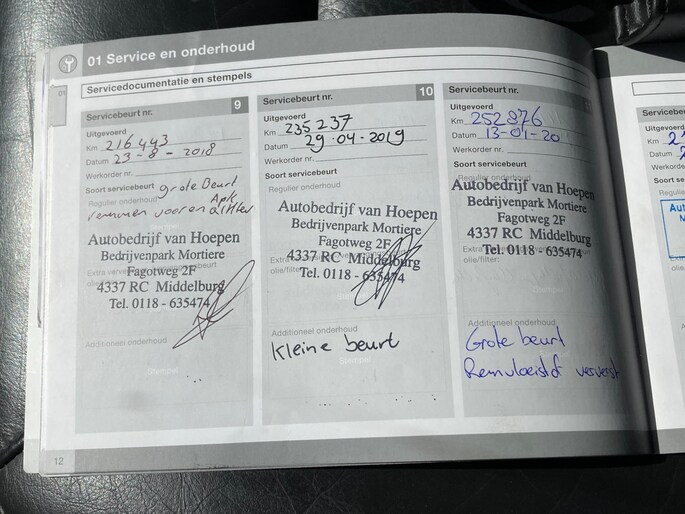 01 Service en onderhoud
01
Servicedocumentatie en stempels
Servicebeurt nr. 9
Uitgevoerd
Km 216443
Datum 23-8-2018
Werkorder nr.
Soort servicebeurt grote Beurt
Regulier onderhoud APK
remmen voor en achter
Autobedrijf van Hoepen
Bedrijvenpark Mortiere
Fagotweg 2F
4337 RC Middelburg
Tel. 0118 - 635474
Additioneel onderhoud
Stempel
Servicebeurt nr. 10
Uitgevoerd
Km 235237
Datum 29-04-2019
Werkorder nr.
Soort servicebeurt
Regulier onderhoud
Autobedrijf van Hoepen
Bedrijvenpark Mortiere
Fagotweg 2F
4337 RC Middelburg
Tel. 0118 - 635474
olie/filter:
Additioneel onderhoud
Kleine beurt
Servicebeurt nr.
Uitgevoerd
Km 252876
Datum 13-01-20
Werkorder nr.
Soort servicebeurt
Regulier onderhoud
Autobedrijf van Hoepen
Bedrijvenpark Mortiere
Fagotweg 2F
4337 RC Middelburg
Tel. 0118 - 635474
olie/filter:
Additioneel onderhoud
Grote beurt
Remvloeistof ververst
12
Uitgevoerd
Km
Datum